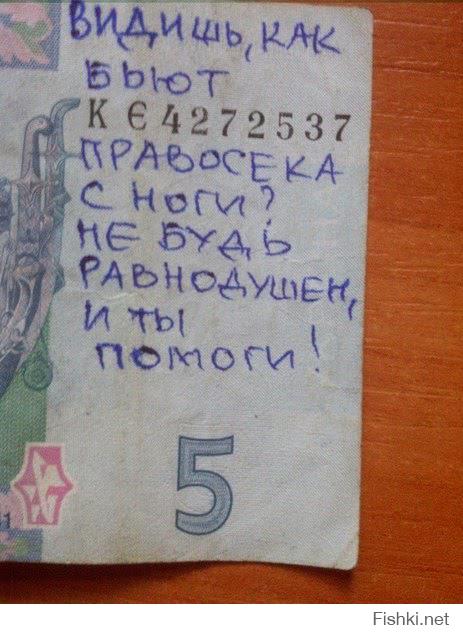 ВИДИШЬ, КАК
БЬЮТ
КЄ4272537
ПРАВОСЕКА
С НОГИ?
НЕ БУДЬ
РАВНОДУШЕН,
И ТЫ
ПОМОГИ!
5
Fishki.net